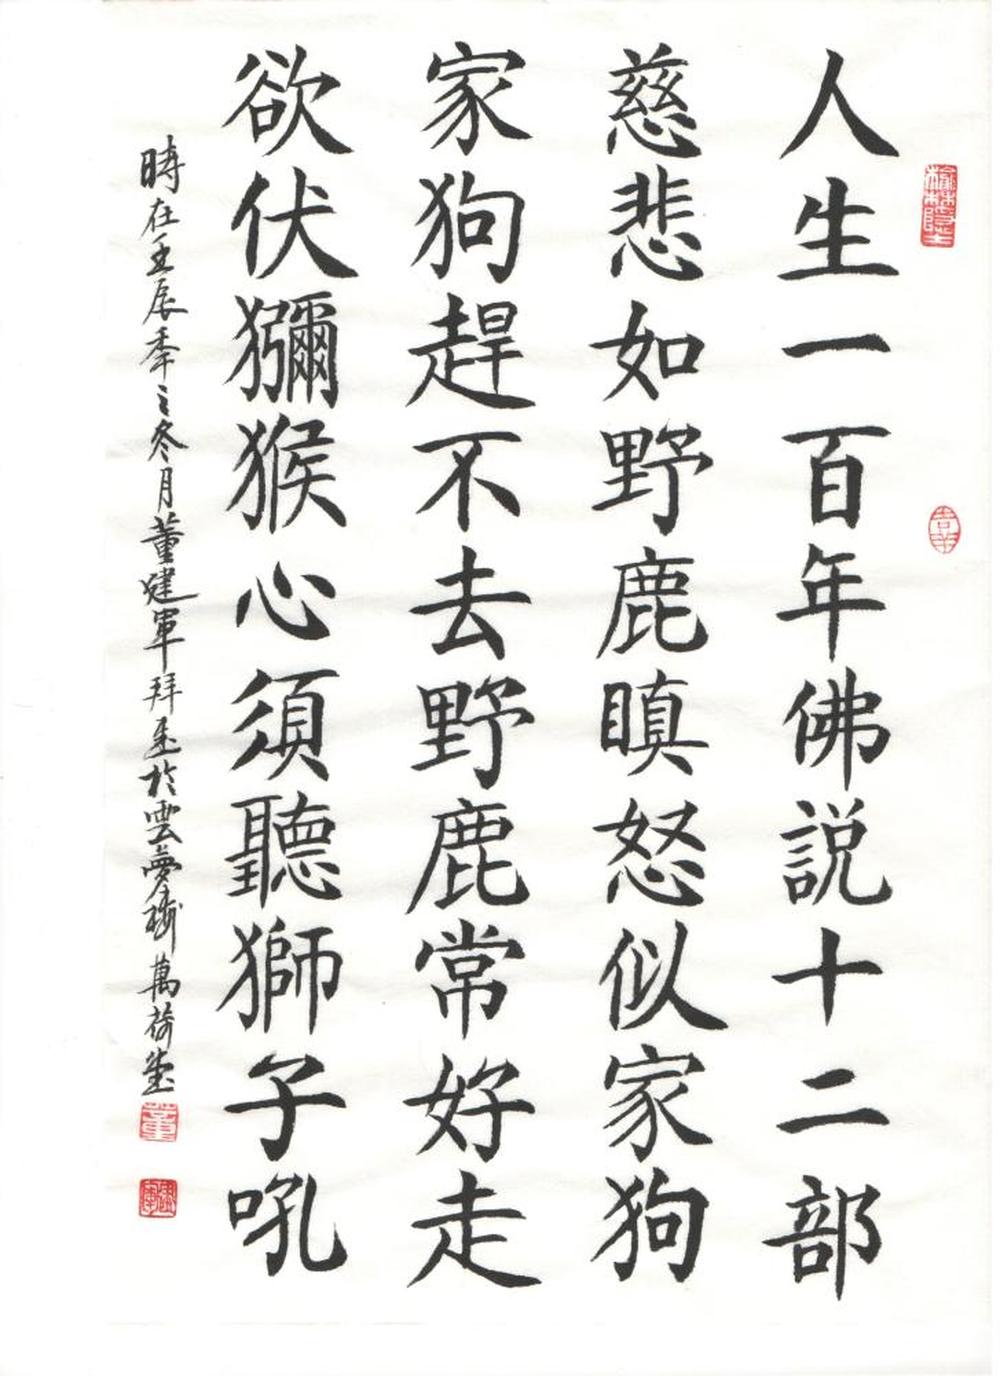 人生一百年佛説十二部
慈悲如野鹿瞋怒似家狗
家狗趕不去野鹿常好走
欲伏獼猴心須聽獅子吼
時在壬辰季之冬月董建軍拜書於雲夢樓萬荷堂